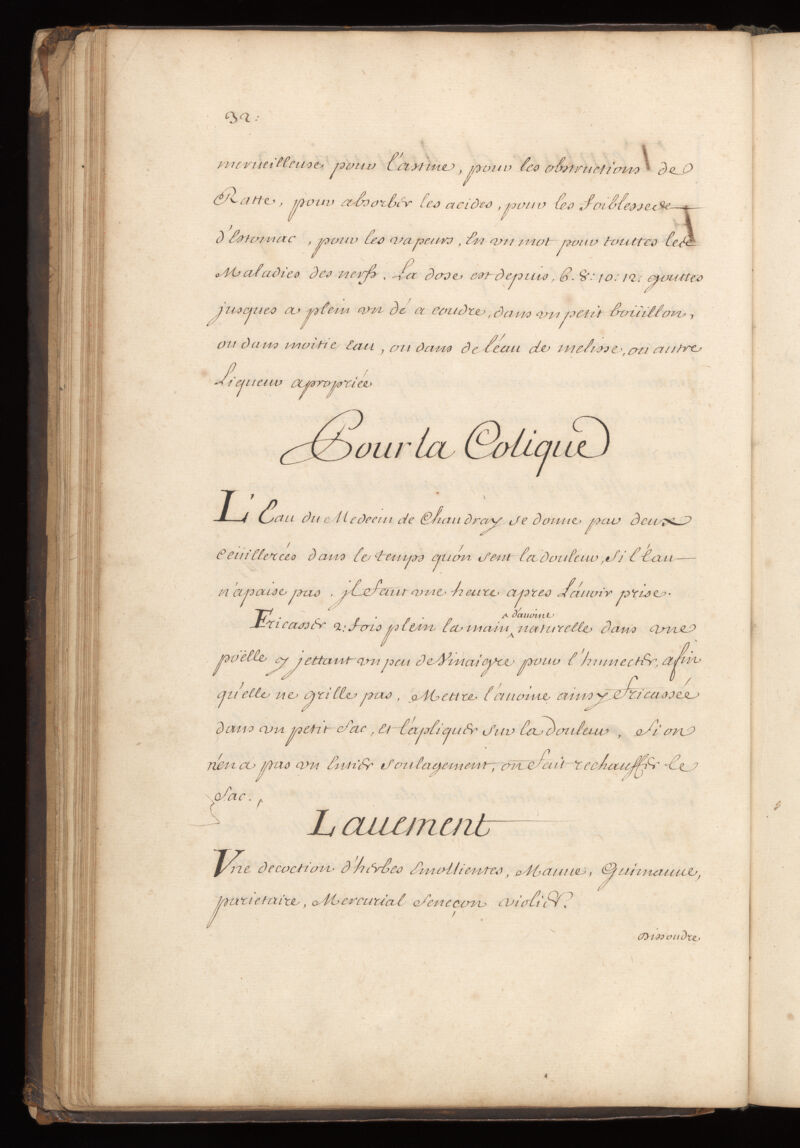 32:
merueilleuse pour l'astme, pour les obstructions de
Ratte, pour absorber les acides, pour les foiblesse de
d'Estomac, pour les vapeurs, En vn mot pour touttes les
Maladies des nerfs. La dose est depuis, 6. 8: 10: 12: gouttes
jusques a plein vn dé a coudre, dans vn petit boüillon,
ou dans moitie Eau, ou dans de l'éau de melisse, ou autre
Liqueur apropriée
Pour la Colique
L'Eau du Medecin de Chaudray se donne par deux
Ceuillerées dans le temps qu'on sent la douleur, Si l'Eau
n'apaise pas, jl faut vne heure apres L'auoir prise.
d'auoine
Fricasser 2: fois plein la main ^ naturelle dans vne
poëlle y jettant vn peu de Vinaigre pour l'humecter, afin
qu'elle ne grille pas, Mettre l'auoine ainsy fricassée
dans vn petit sac, et l'apliquer sur la douleur, Si on
n'en a pas vn Entier soulagement, on fait rechauffer le
Sac.
Lauement
Vne decoction d'herbes Emollientes, Mauue, Guimauue,
parietaire, Mercurial Seneçon violier.
Dissoudre